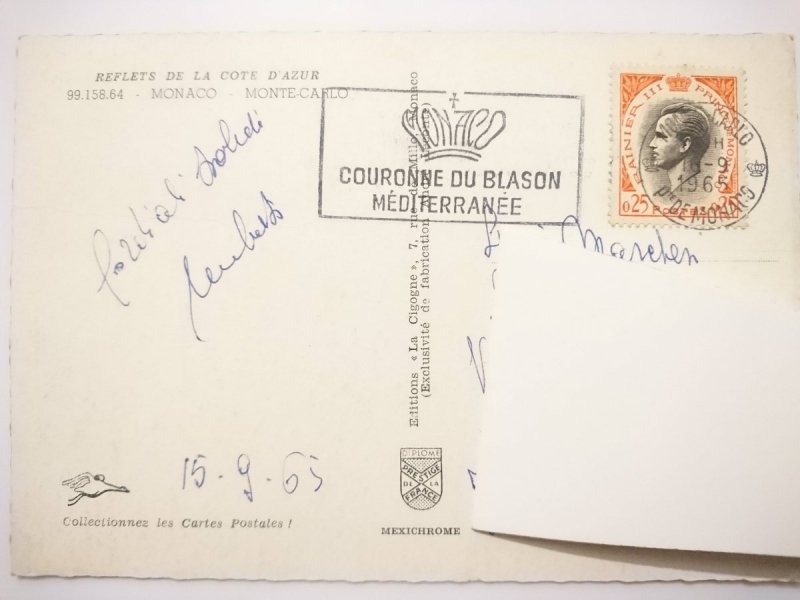 REFLETS DE LA COTE D'AZUR
99.158.64 - MONACO - MONTE-CARLO
MONACO
COURONNE DU BLASON
MÉDITERRANÉE
RAINIER III PRINCE DE MONACO
0.25 POSTES 0.25
MONTE-CARLO
1965
PTE DE MONACO
Cordiali Saluti
15-9-65
Marchen
Editions « La Cigogne », 7, rue de Millo, Monaco
(Exclusivité de fabrication André Leconte)
DIPLOME
PRESTIGE
DE LA
FRANCE
MEXICHROME
Collectionnez les Cartes Postales !